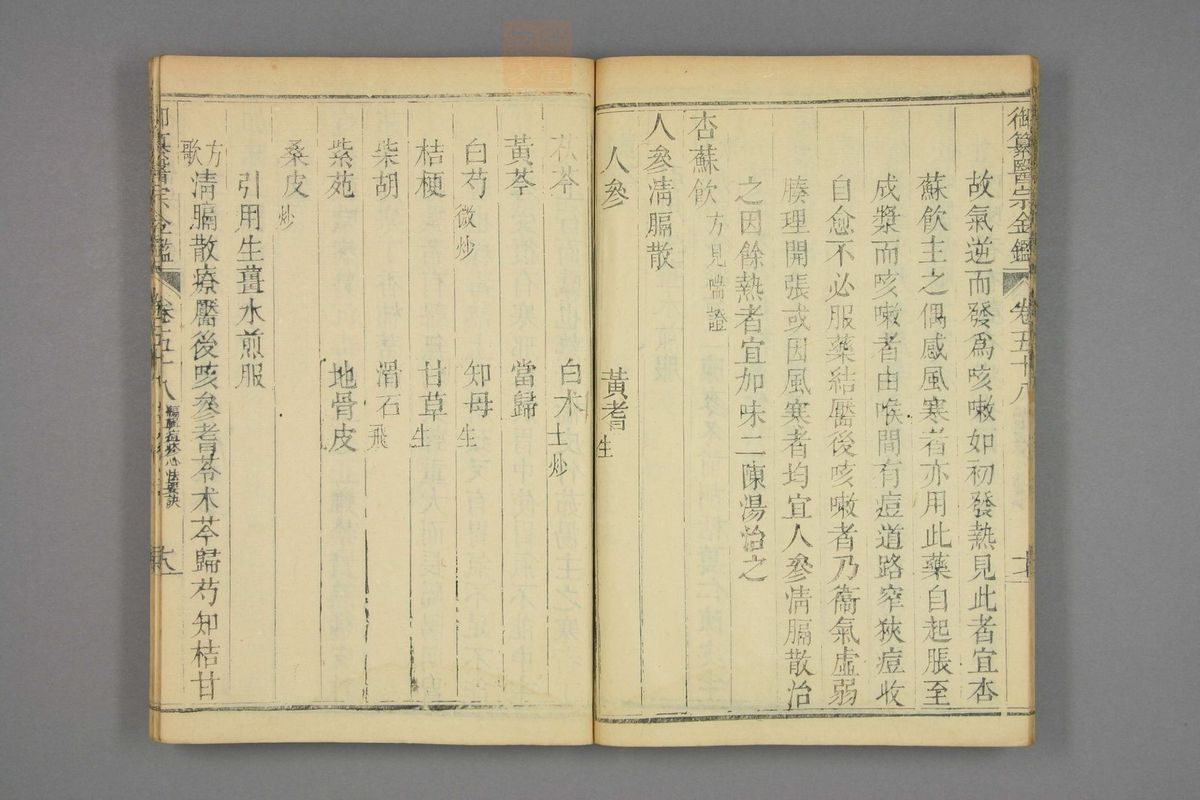 御纂醫宗金鑑 卷五十八
故氣逆而發為咳嗽如初發熱見此者宜杏
蘇飲主之偶感風寒者亦用此藥自起脹至
成漿而咳嗽者由喉間有痘道路窄狹痘收
自愈不必服藥結靨後咳嗽者乃衞氣虛弱
腠理開張或因風寒者均宜人參清膈散治
之因餘熱者宜加味二陳湯治之
杏蘇飲 方見喘證
人參清膈散
人參 黃耆 生
茯苓 白术 土炒
黃芩 當歸
白芍 微炒 知母 生
桔梗 甘草 生
柴胡 滑石 飛
紫苑 地骨皮
桑皮 炒
引用生薑水煎服
方歌 清膈散療靨後咳參耆苓术芩歸芍知桔甘
御纂醫宗金鑑 卷五十八